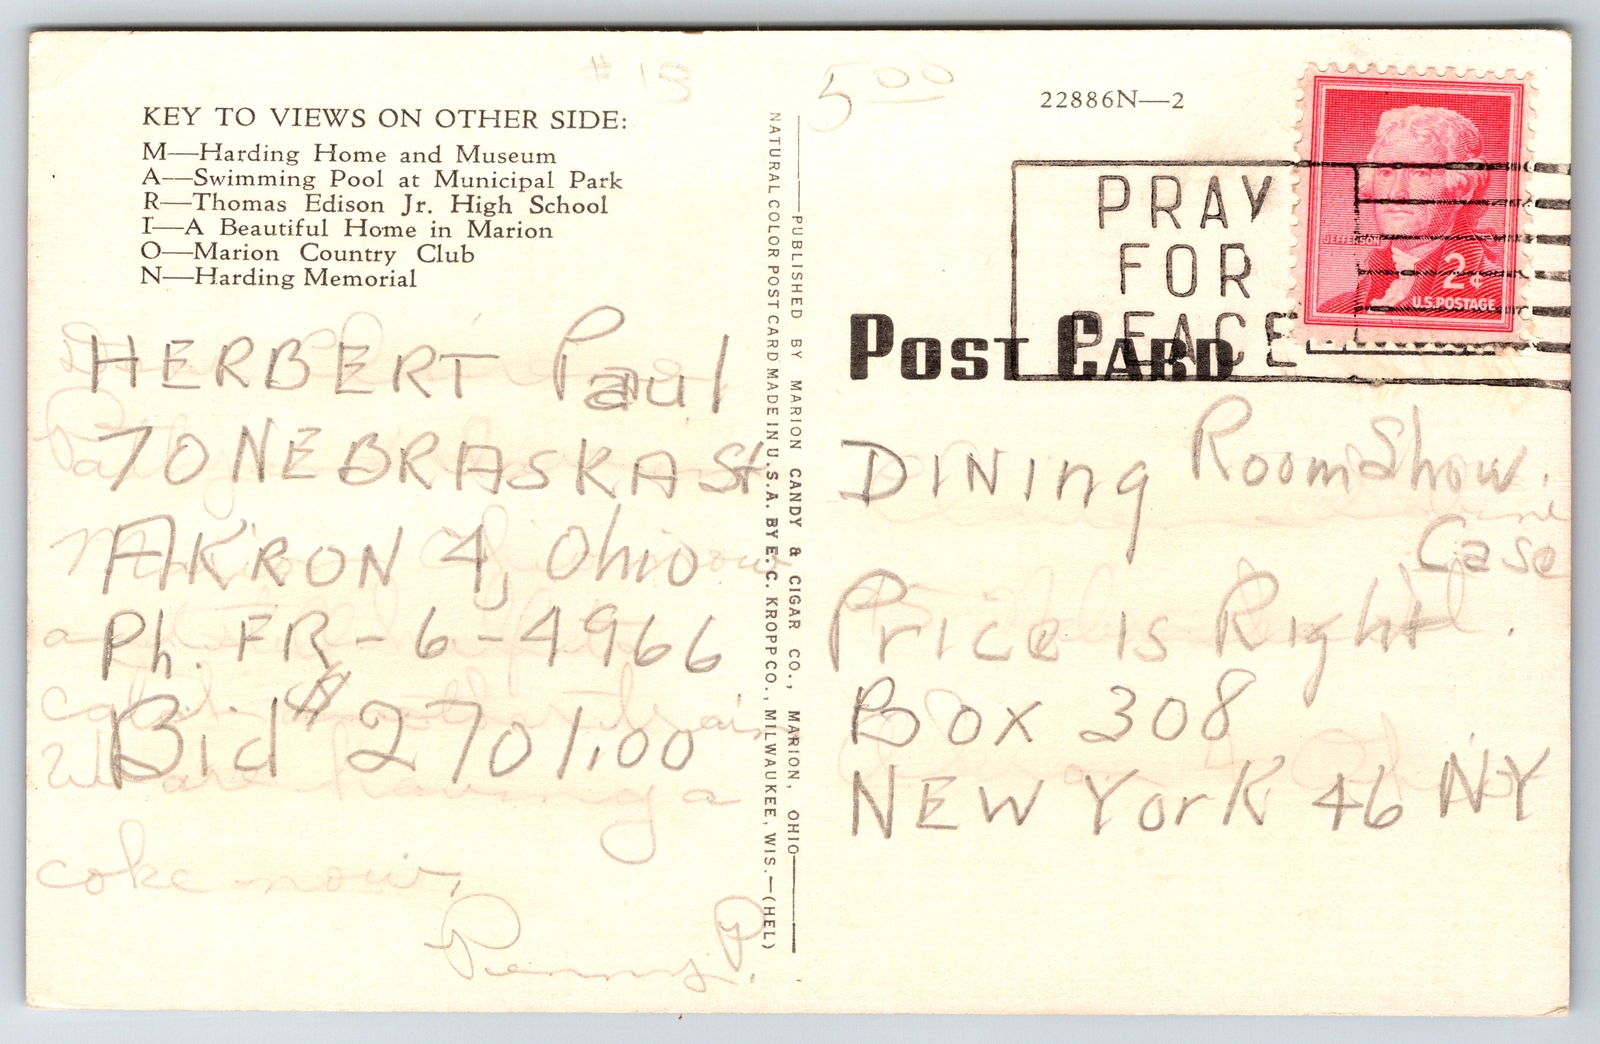 # 13
5 00
22886N—2
KEY TO VIEWS ON OTHER SIDE:
M—Harding Home and Museum
A—Swimming Pool at Municipal Park
R—Thomas Edison Jr. High School
I—A Beautiful Home in Marion
O—Marion Country Club
N—Harding Memorial
HERBERT Paul
70 NEBRASKA St
AKRON 4, Ohio
Ph. FR-6-4966
Bid $ 2701.00
We are having a
coke now,
Penny P.
PUBLISHED BY MARION CANDY & CIGAR CO., MARION, OHIO
NATURAL COLOR POST CARD MADE IN U.S.A. BY E. C. KROPP CO., MILWAUKEE, WIS.—(HEL)
PRAY
FOR
PEACE
JEFFERSON
2¢
U.S. POSTAGE
POST CARD
DINING Room Show.
Case
Price Is Right.
Box 308
NEW YorK 46 NY